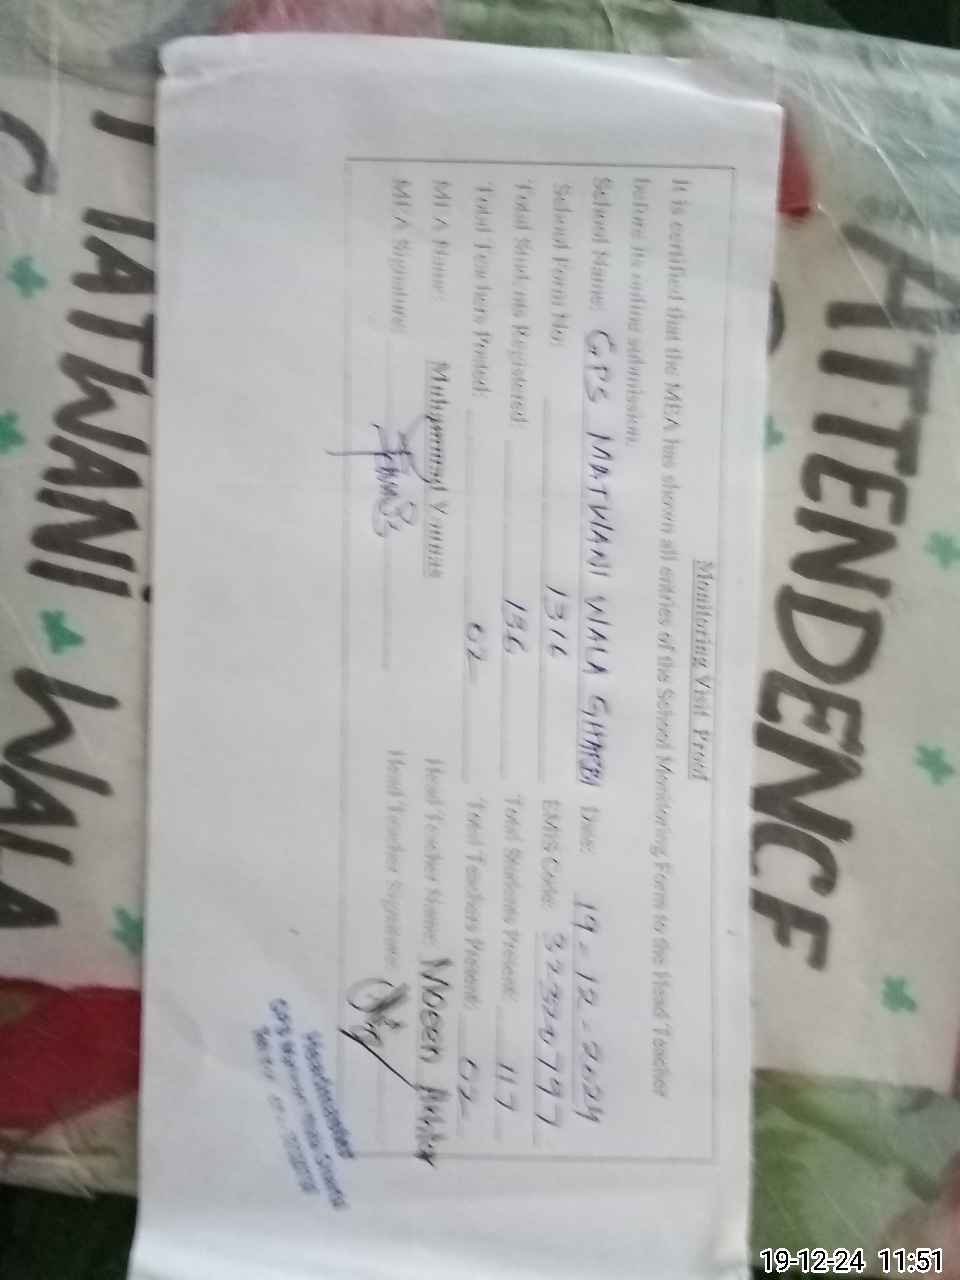 ATTENDENCE
Monitoring Visit Proof
It is certified that the MEA has shown all entries of the School Monitoring Form to the Head Teacher
before its online submission.
School Name: GPS MATWANI WALA GHARBI Date: 19-12-2024
School Form No: 1316 EMIS Code:
Total Students Registered: 136 Total Students Present: 117
Total Teachers Posted: 02 Total Teachers Present: 02
MEA Name: Muhammad Younas Head Teacher Name: Moeen Akhtar
MEA Signature: Head Teacher Signature:
Headmaster
GPS
MATWANI WALA
19-12-24 11:51